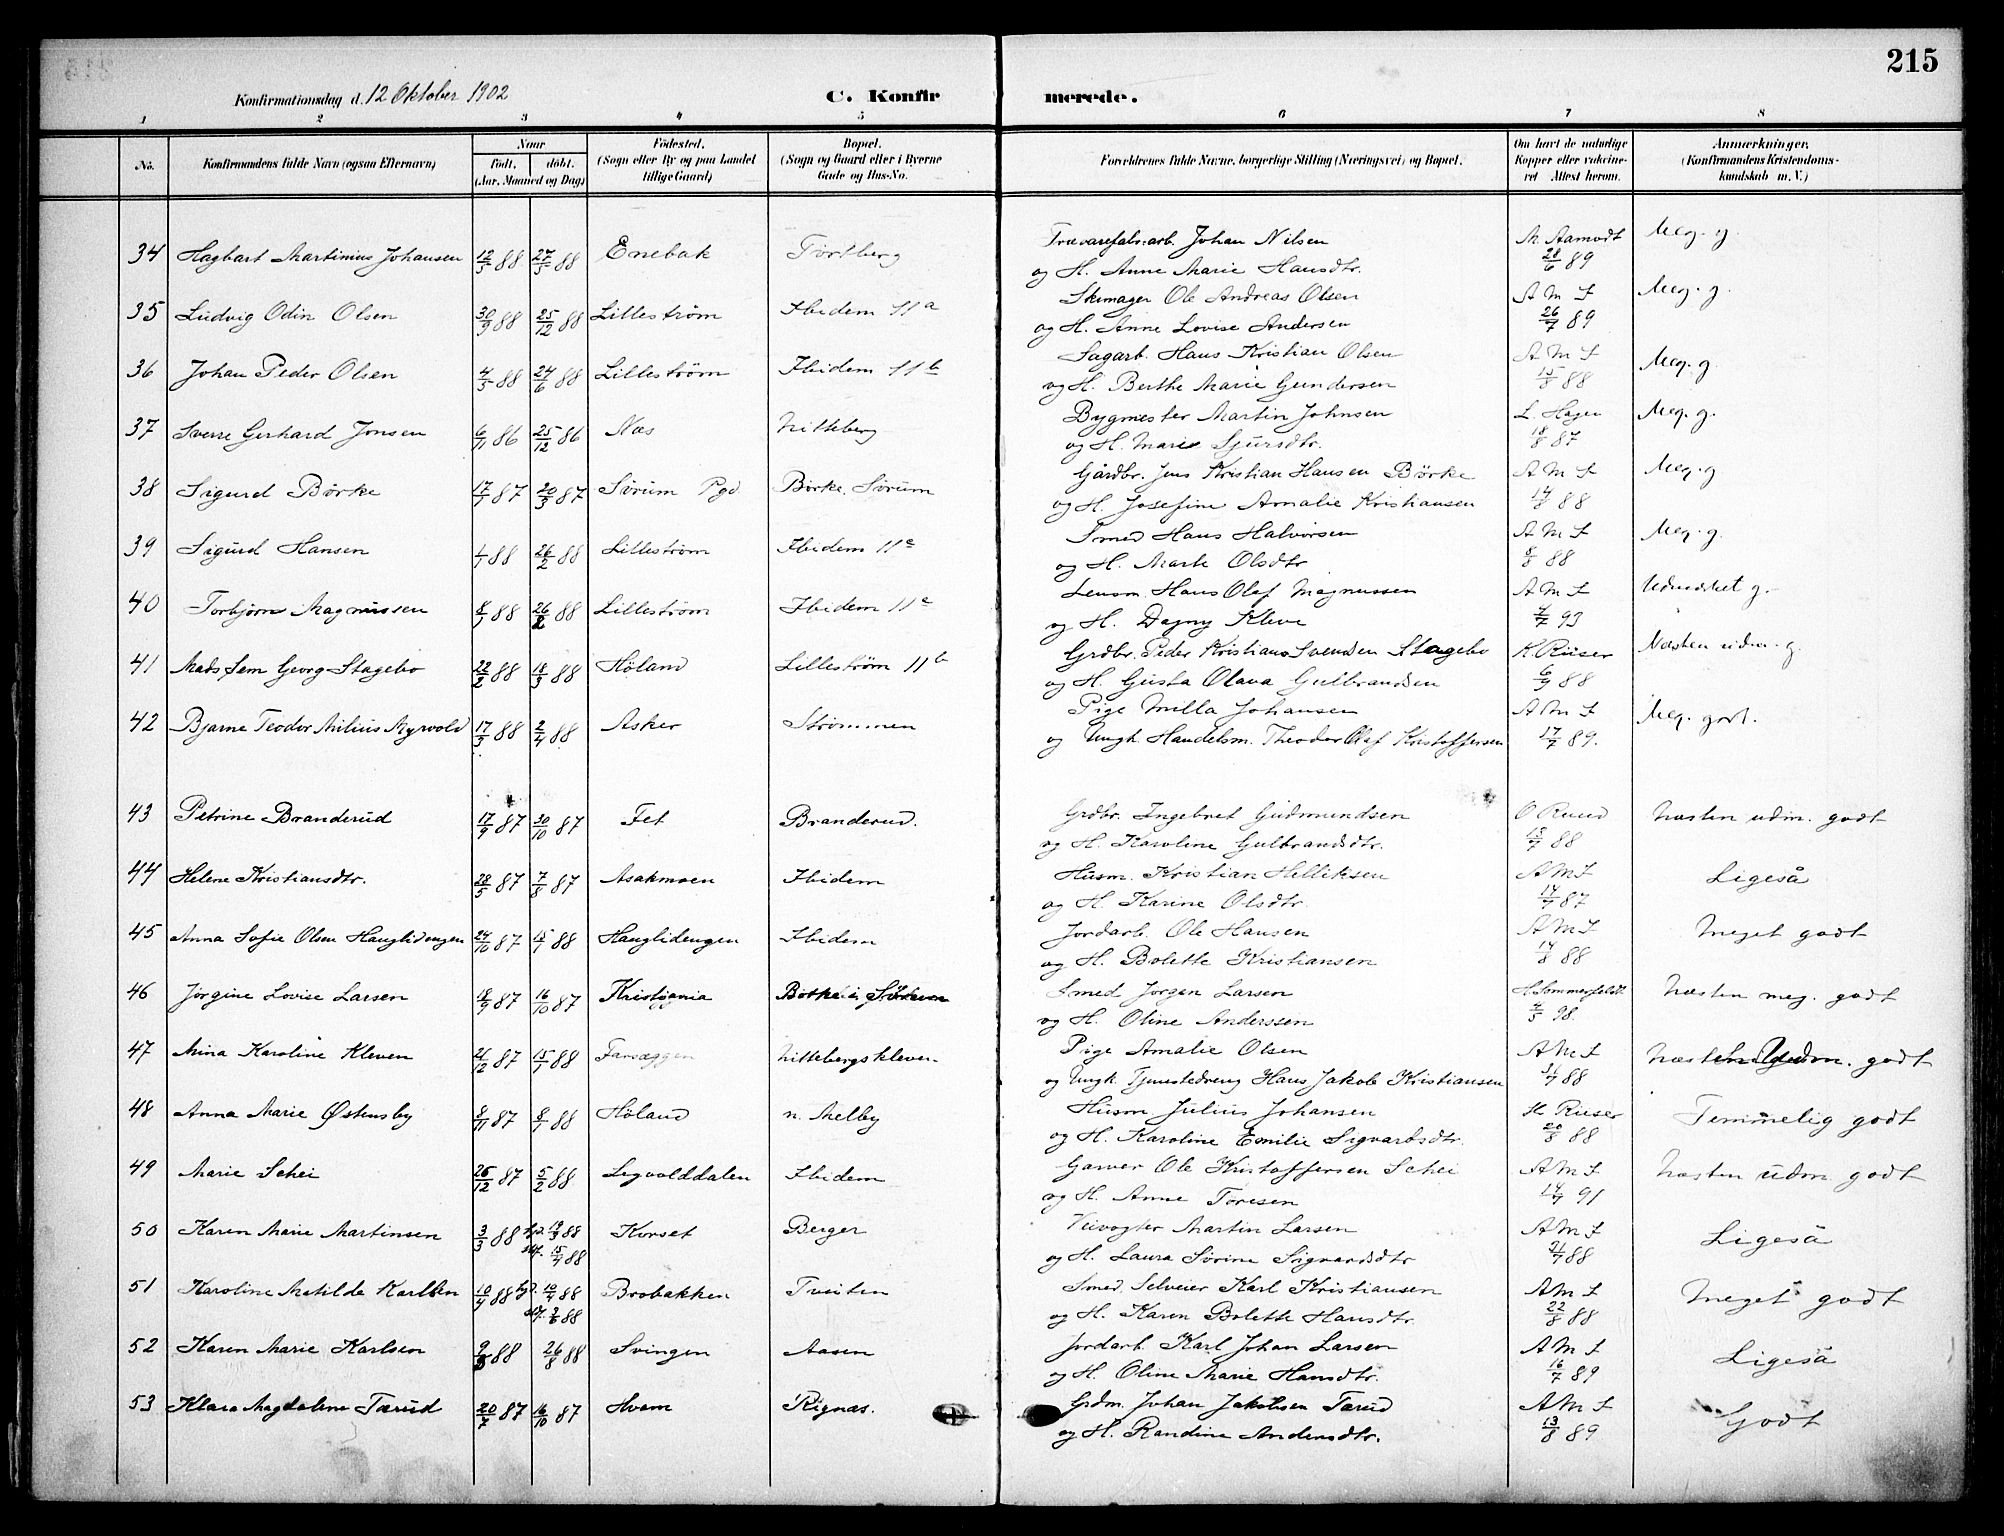 215
Konfirmationsdag d. 12 Oktober 1902
C. Konfirmerede.
1 2 3 4 5 6 7 8
No. Konfirmandens fulde Navn (ogsaa Efternavn) Naar født, døbt. (Aar, Maaned og Dag) Fødested. (Sogn eller By og paa Landet tillige Gaard) Bopæl. (Sogn og Gaard eller i Byerne Gade og Hus-No. Forældrenes fulde Navne, borgerlige Stilling (Næringsvei) og Bopæl. Om havt de naturlige Kopper eller vakcineret. Attest herom. Anmærkninger. (Konfirmandens Kristendomskundskab m. V.)
34 Hagbart Martinius Johansen 12/5 88 27/5 88 Enebak Tortberg Trævarefabr.arb. Johan Nilsen M. Aamodt Meg. g.
og H. Anne Marie Hansdtr. 28/6 89
35 Ludvig Odin Olsen 30/9 88 25/12 88 Lillestrøm Ibidem 11a Skomager Ole Andreas Olsen A M S Meg. g.
og H. Anne Lovise Andersen 26/7 89
36 Johan Peder Olsen 4/5 88 24/6 88 Lillestrøm Ibidem 11b Sagarb. Hans Kristian Olsen A M S Meg. g.
og H. Berthe Marie Gundersen 15/8 88
37 Sverre Gerhard Jonsen 6/11 86 25/12 86 Næs Nitteberg Bygmester Martin Johnsen L. Hagen Meg. g.
og H. Marie Sjursdtr. 18/8 87
38 Sigurd Børke 17/1 87 20/3 87 Sørum Pgd Børke, Sørum Gårdbr. Jens Kristian Hansen Børke A M S Meg. g
og H. Josefine Amalie Kristiansen 14/8 88
39 Sigurd Hansen 1/1 88 26/2 88 Lillestrøm Ibidem 11e Smed Hans Halvorsen A M S Meg. g.
og H. Marte Olsdtr 8/8 88
40 Torbjørn Magnussen 8/1 88 26/2 88 Lillestrøm Ibidem 11e Lensm. Hans Olaf Magnussen A M S Udmerket g.
og H. Dagny Kleve 4/7 93
41 Mads Sem Georg Stagebo 22/2 88 18/3 88 Høland Lillestrøm 11b Grdbr. Peder Kristian Svendsen Stagebo K. Ruser Næsten udm. g.
og H. Gusta Olava Gulbrandsen 6/9 88
42 Bjarne Teodor Milius Myrvold 17/3 88 2/4 88 Asker Strømmen Pige Milla Johansen A M S Meg. godt.
og Ungk. Handelsm. Theodor Olaf Kristoffersen 17/7 89.
43 Petrine Branderud 17/9 87 30/10 87 Fet Branderud. Grdbr. Ingebret Gudmundsen O Ruud Næsten udm. godt
og H. Karoline Gulbrandsdtr. 13/7 88
44 Helene Kristiansdtr. 28/5 87 7/8 87 Asakmoen Ibidem Husm. Kristian Helliksen A M S Ligeså
og H. Karine Olsdtr. 14/7 87
45 Anna Sofie Olsen Hauglidengen 24/10 87 15/1 88 Hauglidengen Ibidem Jordarb. Ole Hansen A M S Meget godt
og H. Bolette Kristiansen 14/8 88
46 Jørgine Lovise Larsen 18/9 87 16/10 87 Kristiania Smed Jørgen Larsen H. Sommerfeldt Næsten meg. godt
og H. Oline Anderssen 4/5 98.
47 Mina Karoline Kleven 21/12 87 15/1 88 Farsæggen Nittebergskleven Pige Amalie Olsen A M S Næsten udm. godt
og Ungk. Tjenestedreng Hans Jakob Kristiansen 31/7 88
48 Anna Marie Østensby 8/11 87 8/1 88 Høland n. Melby Husm Julius Johansen K Ruser Temmelig godt
og H. Karoline Emilie Sigvartsdtr. 20/8 88
49 Marie Schei 26/12 87 5/2 88 Ligvolddalen Ibidem Garver Ole Kristoffersen Schei A M S Næsten udm. godt
og H. Anne Toresen 14/7 91
50 Karen Marie Martinsen 3/3 88 19/3 88 Korset Berger Veivogter Martin Larsen A M S Ligeså
stf. 15/4 88 og H. Laura Sørine Sigvardsdtr 31/7 88
51 Karoline Matilde Karlsen 10/4 88 10/4 88 Brobakken Tveiten Smed. Selveier Karl Kristiansen A M S Meget godt
stf. 3/6 88 og H. Karen Bolette Hansdtr. 22/8 88
52 Karen Marie Karlsen 88 26/8 88 Svingen Aasen Jordarb. Karl Johan Larsen A M S Ligeså
og H. Oline Marie Hansdtr. 16/7 89
53 Klara Magdalene Tærud 20/7 87 16/10 87 Hvam Rignæs. Grdm. Johan Jakobsen Tærud A M S Godt
og H. Randine Andersdtr. 13/8 89